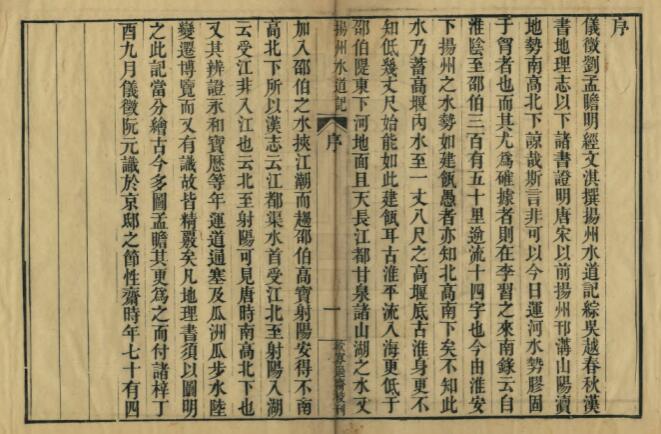 序
儀徵劉孟瞻明經文淇撰揚州水道記綜吳越春秋漢
書地理志以下諸書證明唐宋以前揚州邗溝山陽瀆
地勢南高北下諒哉斯言非可以今日運河水勢膠固
于胷者也而其尤爲確據者則在李習之來南錄云自
淮陰至邵伯三百有五十里逾流十四字也今由淮安
下揚州之水勢如建瓴愚者亦知北高南下矣不知此
水乃蓄高堰內水至一丈八尺之高堰底古淮身更不
知低幾丈尺始能如此建瓴耳古淮平流入海更低于
邵伯隄東下河地面且天長江都甘泉諸山湖之水又
揚州水道記 序 一
加入邵伯之水挾江潮而趨邵伯高寶射陽安得不南
高北下所以漢志云江都渠水首受江北至射陽入湖
云受江非入江也云北至射陽可見唐時南高北下也
又其辨證永和寶歴等年運道通塞及瓜洲瓜步水陸
變遷博覽而又有識故皆精覈矣凡地理書須以圖明
之此記當分繪古今多圖孟瞻其更爲之而付諸梓丁
酉九月儀徵阮元識於京邸之節性齋時年七十有四